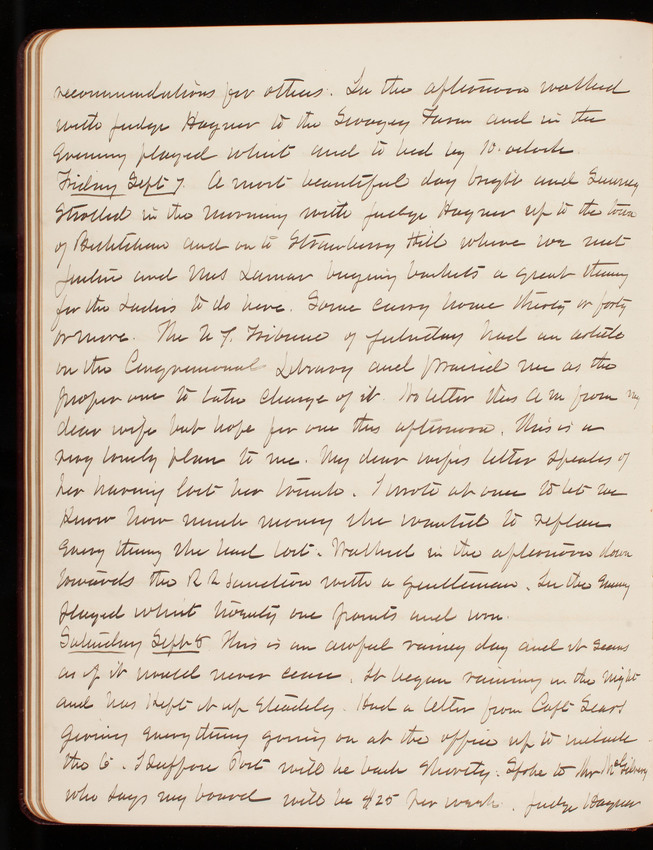 recommendations for others. In the afternoon walked
with Judge Hagner to the Swazey Farm and in the
Evening played whist and to bed by 10. oclock
Friday Sept 7. A most beautiful day bright and Sunny
Strolled in the morning with Judge Hagner up to the town
of Bethlehem and on to Strawberry Hill where we met
Justice and Mrs Lamar buying baskets a great thing
for the Ladies to do here. Some carry home thirty or forty
or more. The N.Y. Tribune of yesterday had an article
on the Congressional Library and praised me as the
proper one to take charge of it. No letter this A.m from my
dear wife but hope for one this afternoon. This is a
very lonely place to me. My dear wife's letter speaks of
her having lost her trunk. I wrote at once to let me
Know how much money she wanted to replace
Every thing she had lost. Walked in the afternoon down
towards the R R Junction with a gentleman. In the Evening
played whist twenty one points and won.
Saturday Sept 8 This is an awful rainy day and it seems
as if it would never cease. It began raining in the night
and has Kept it up Steadily. Had a letter from Capt Sears
Giving Everything going on at the office up to include
the 6. I Suppose Post will be back Shortly. Spoke to Mr
who says my board will be $25 per week. Judge Hagner